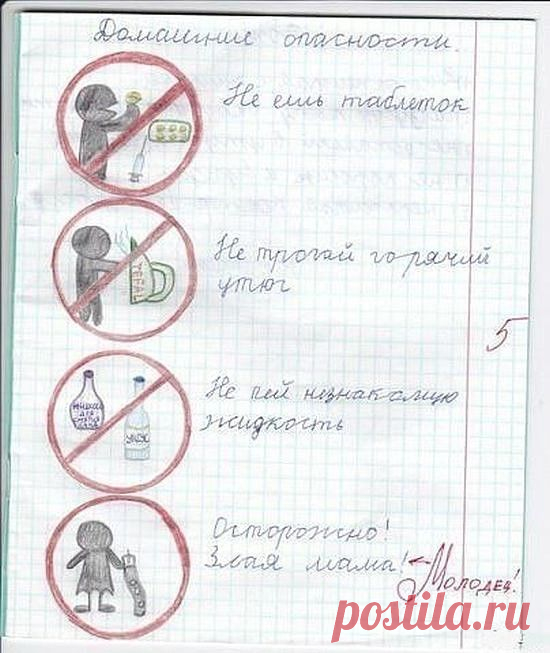 Домашние опасности.
Не ешь таблеток
Не трогай горячий
утюг
TEFAL
5
Не пей незнакомую
жидкость
для
снятия
лака
Осторожно!
Злая мама!
Молодец!
postila.ru